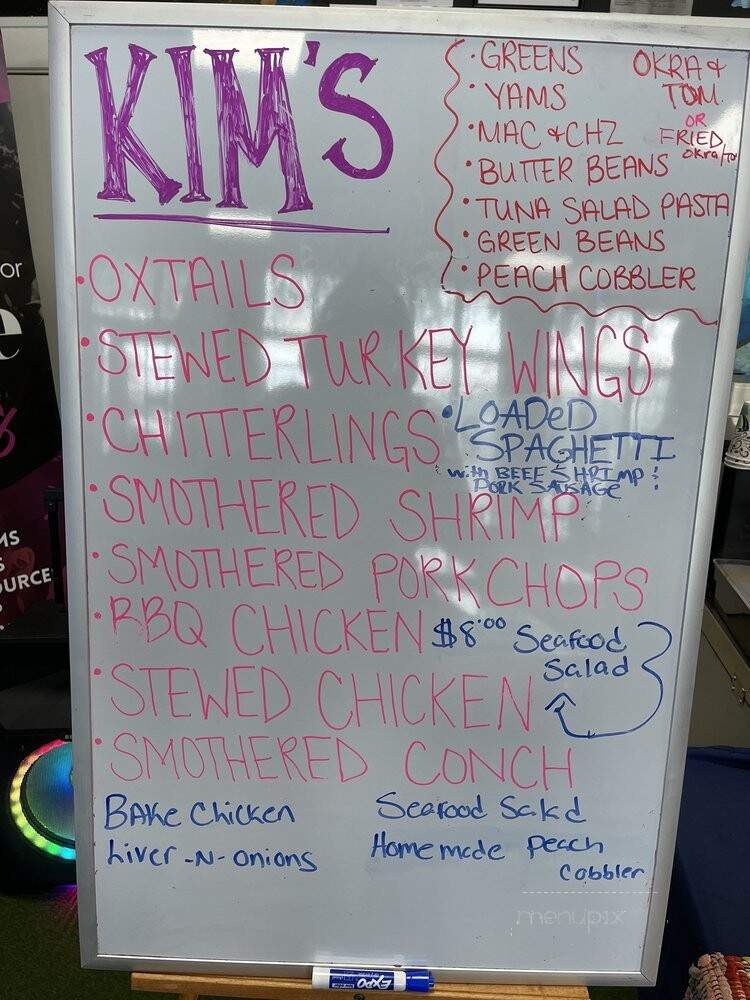 KIM'S
• GREENS
• YAMS
• MAC & CHZ
• BUTTER BEANS
• TUNA SALAD PASTA
• GREEN BEANS
• PEACH COBBLER
OKRA &
TOM.
OR
FRIED
okra/to
• OXTAILS
• STEWED TURKEY WINGS
• CHITTERLINGS
• LOADED
SPAGHETTI
with BEEF SHRIMP &
PORK SAUSAGE
• SMOTHERED SHRIMP
• SMOTHERED PORK CHOPS
• BBQ CHICKEN
$8.00 Seafood
Salad
• STEWED CHICKEN
• SMOTHERED CONCH
BAKe Chicken
Liver-N-onions
Seafood Salad
Homemade Peach
Cobbler
menupix
EXPO
or
e
MS
S
OURCE